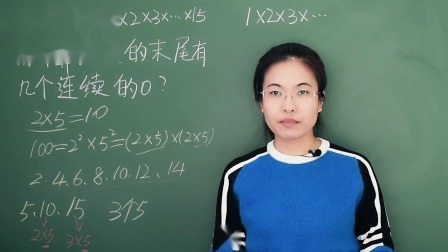 ×2×3×…×15 1×2×3×…
的末尾有
几个连续的0?
2×5=10
100=2²×5²=(2×5)×(2×5)
2.4.6.8.10.12.14
5.10.15 3个5
2×5 3×5